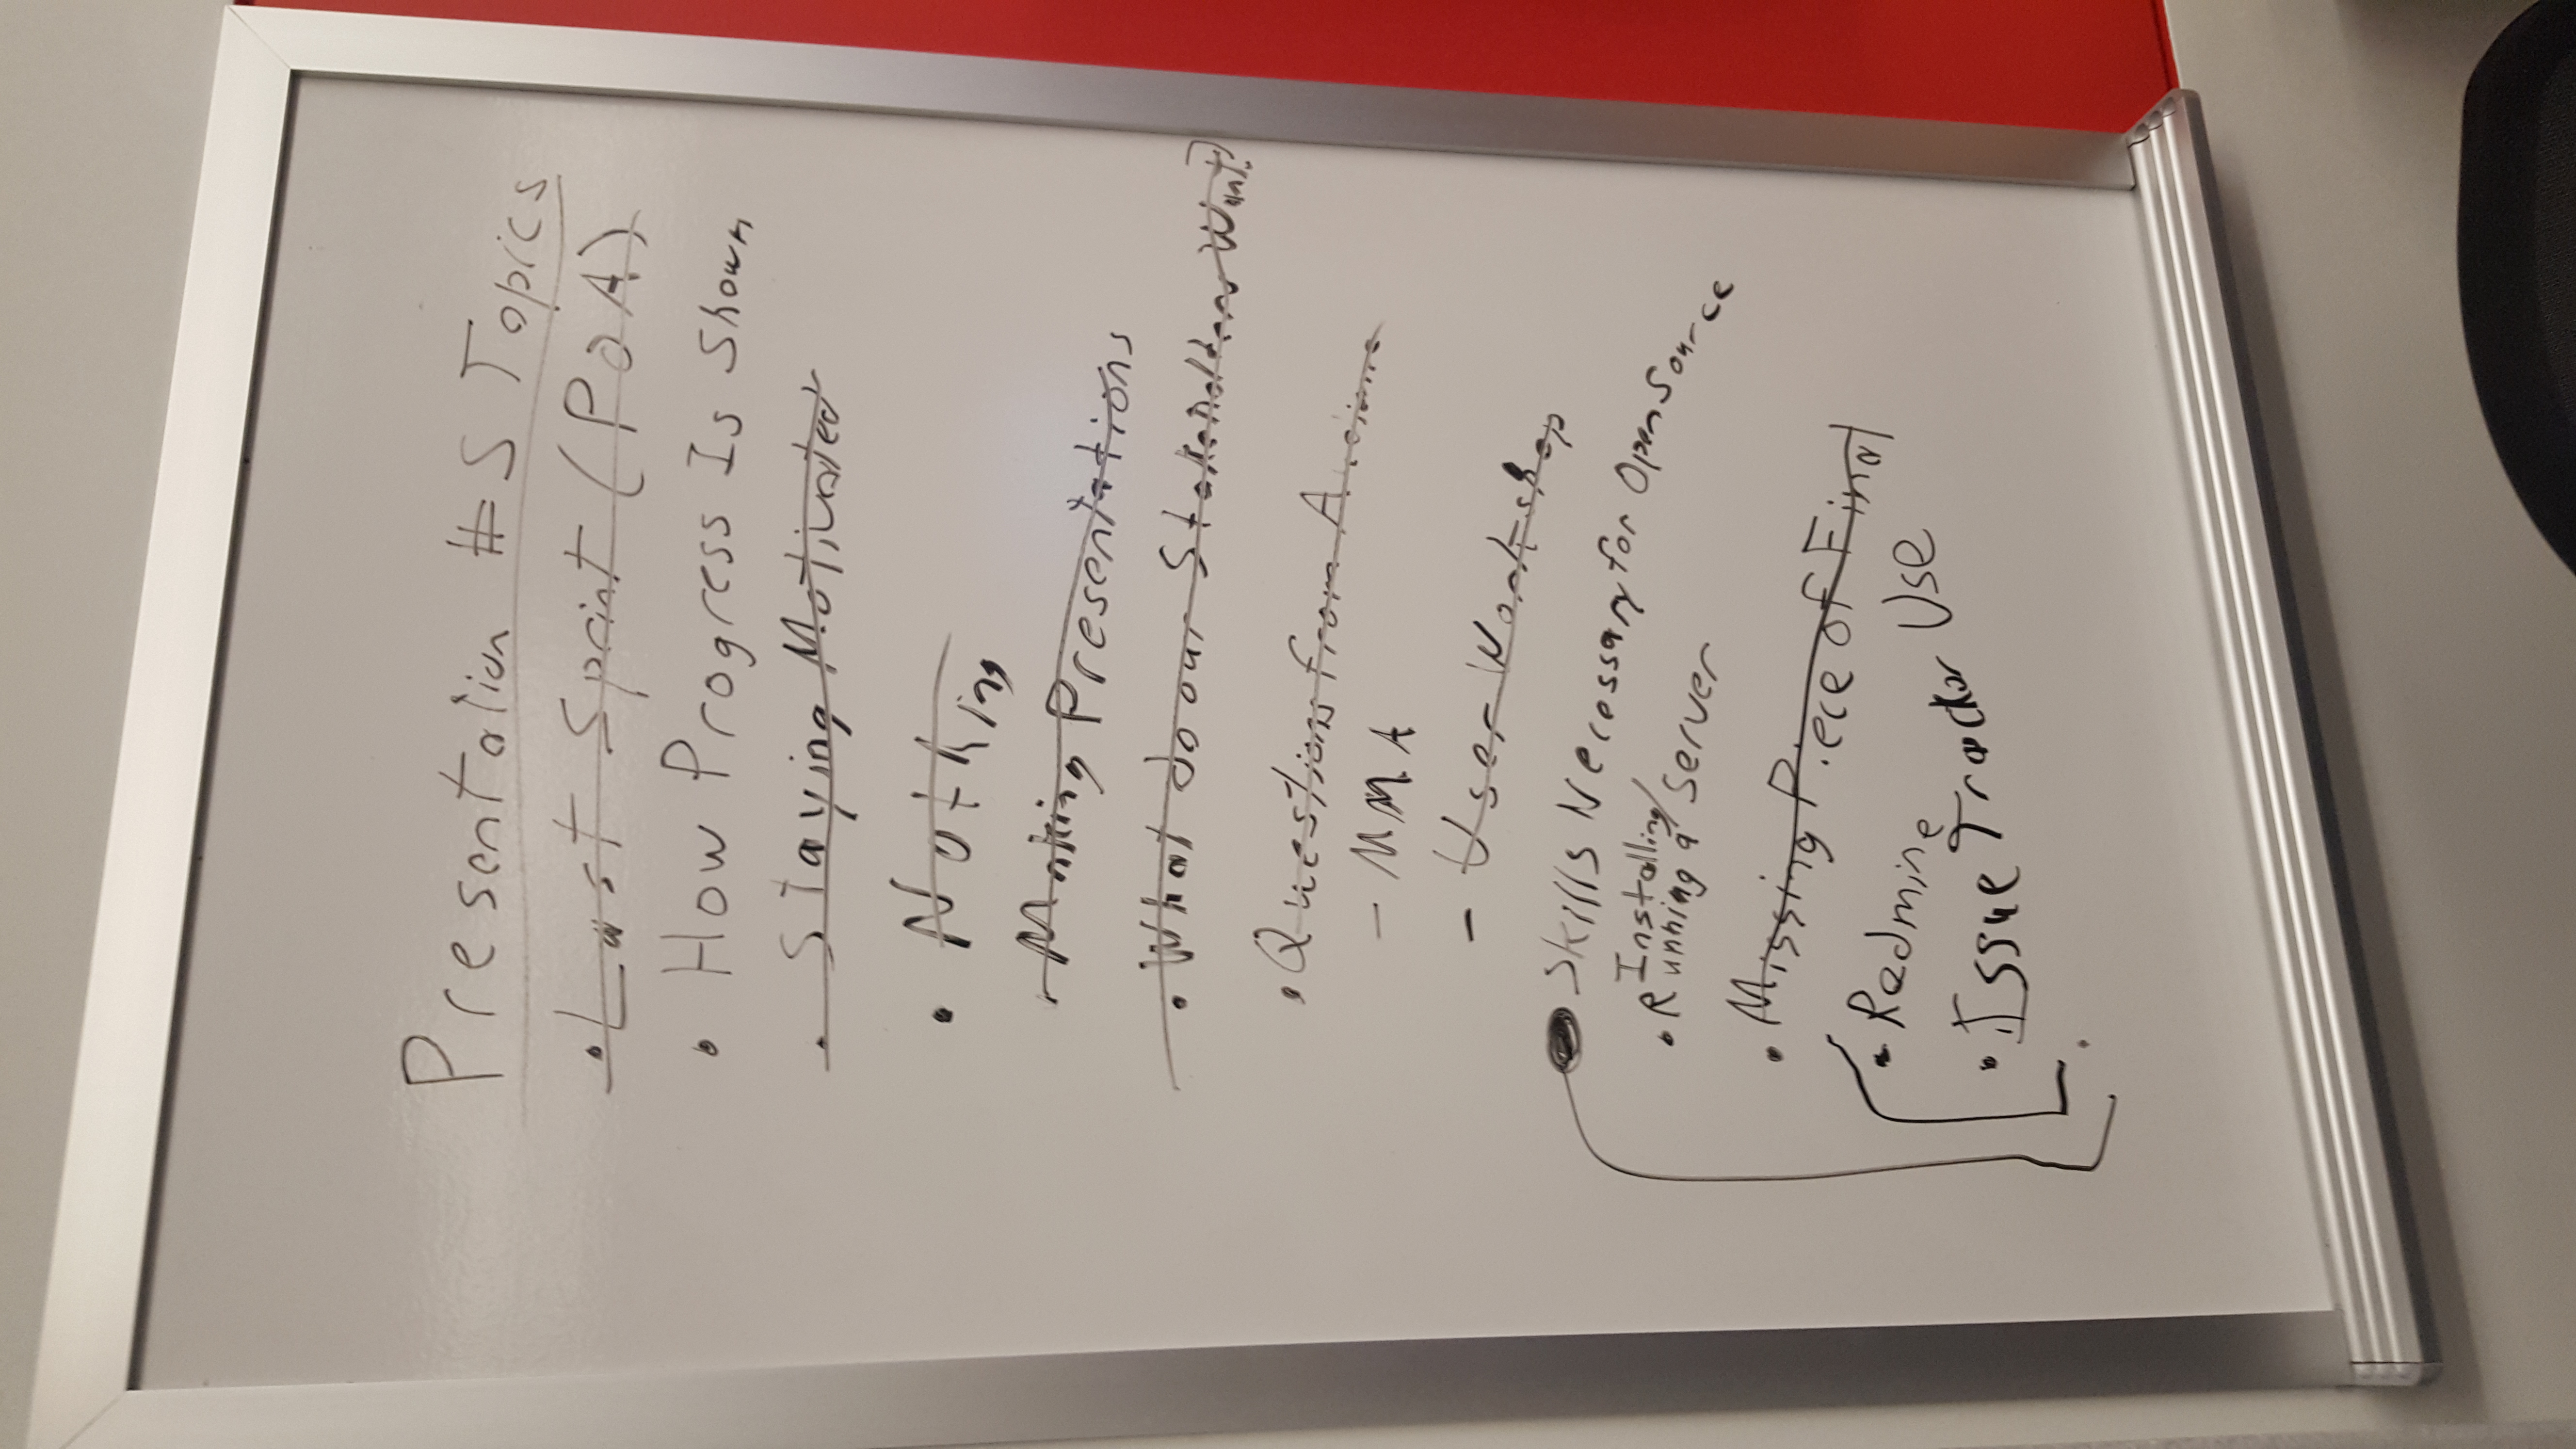 Presentation #5 Topics
• Last Sprint (POA)
• How Progress Is Shown
• Staying Motivated
• Nothing
• Making Presentations
• What do our Stakeholders Want?
• Questions from
- MMA
- User Workshop
• Skills Necessary for Open Source
Installing/
• Running a Server
• Missing Piece of Final
• Redmine
• Issue Tracker Use
•